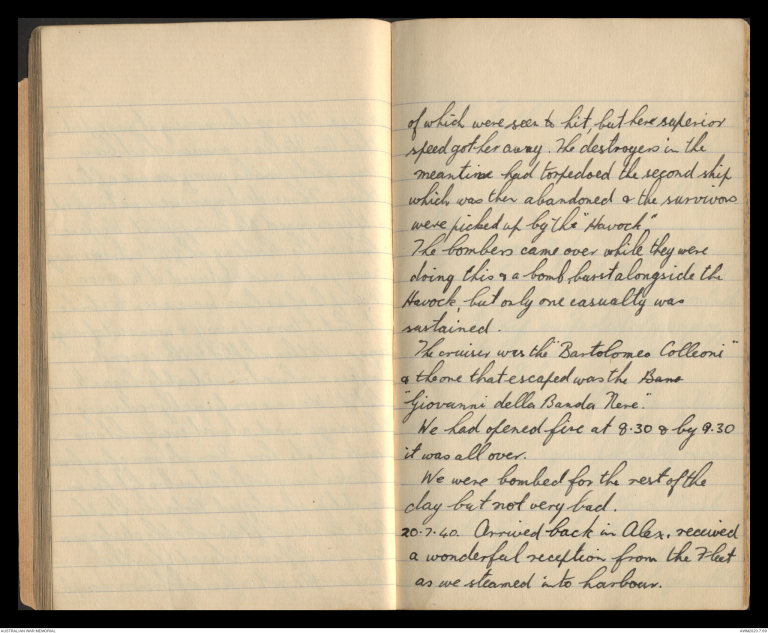 of which were seen to hit, but here superior
speed got her away. The destroyers in the
meantime had torpedoed the second ship
which was then abandoned & the survivors
were picked up by the "Havock"
The bombers came over while they were
doing this & a bomb burst alongside the
Havock, but only one casualty was
sustained.
The cruiser was the "Bartolomeo Colleoni"
& the one that escaped was the Bano
"Giovanni della Banda Nere".
We had opened fire at 8.30 & by 9.30
it was all over.
We were bombed for the rest of the
day but not very bad.
20.7.40. Arrived back in Alex. received
a wonderful reception from the Fleet
as we steamed into harbour.
AUSTRALIAN WAR MEMORIAL